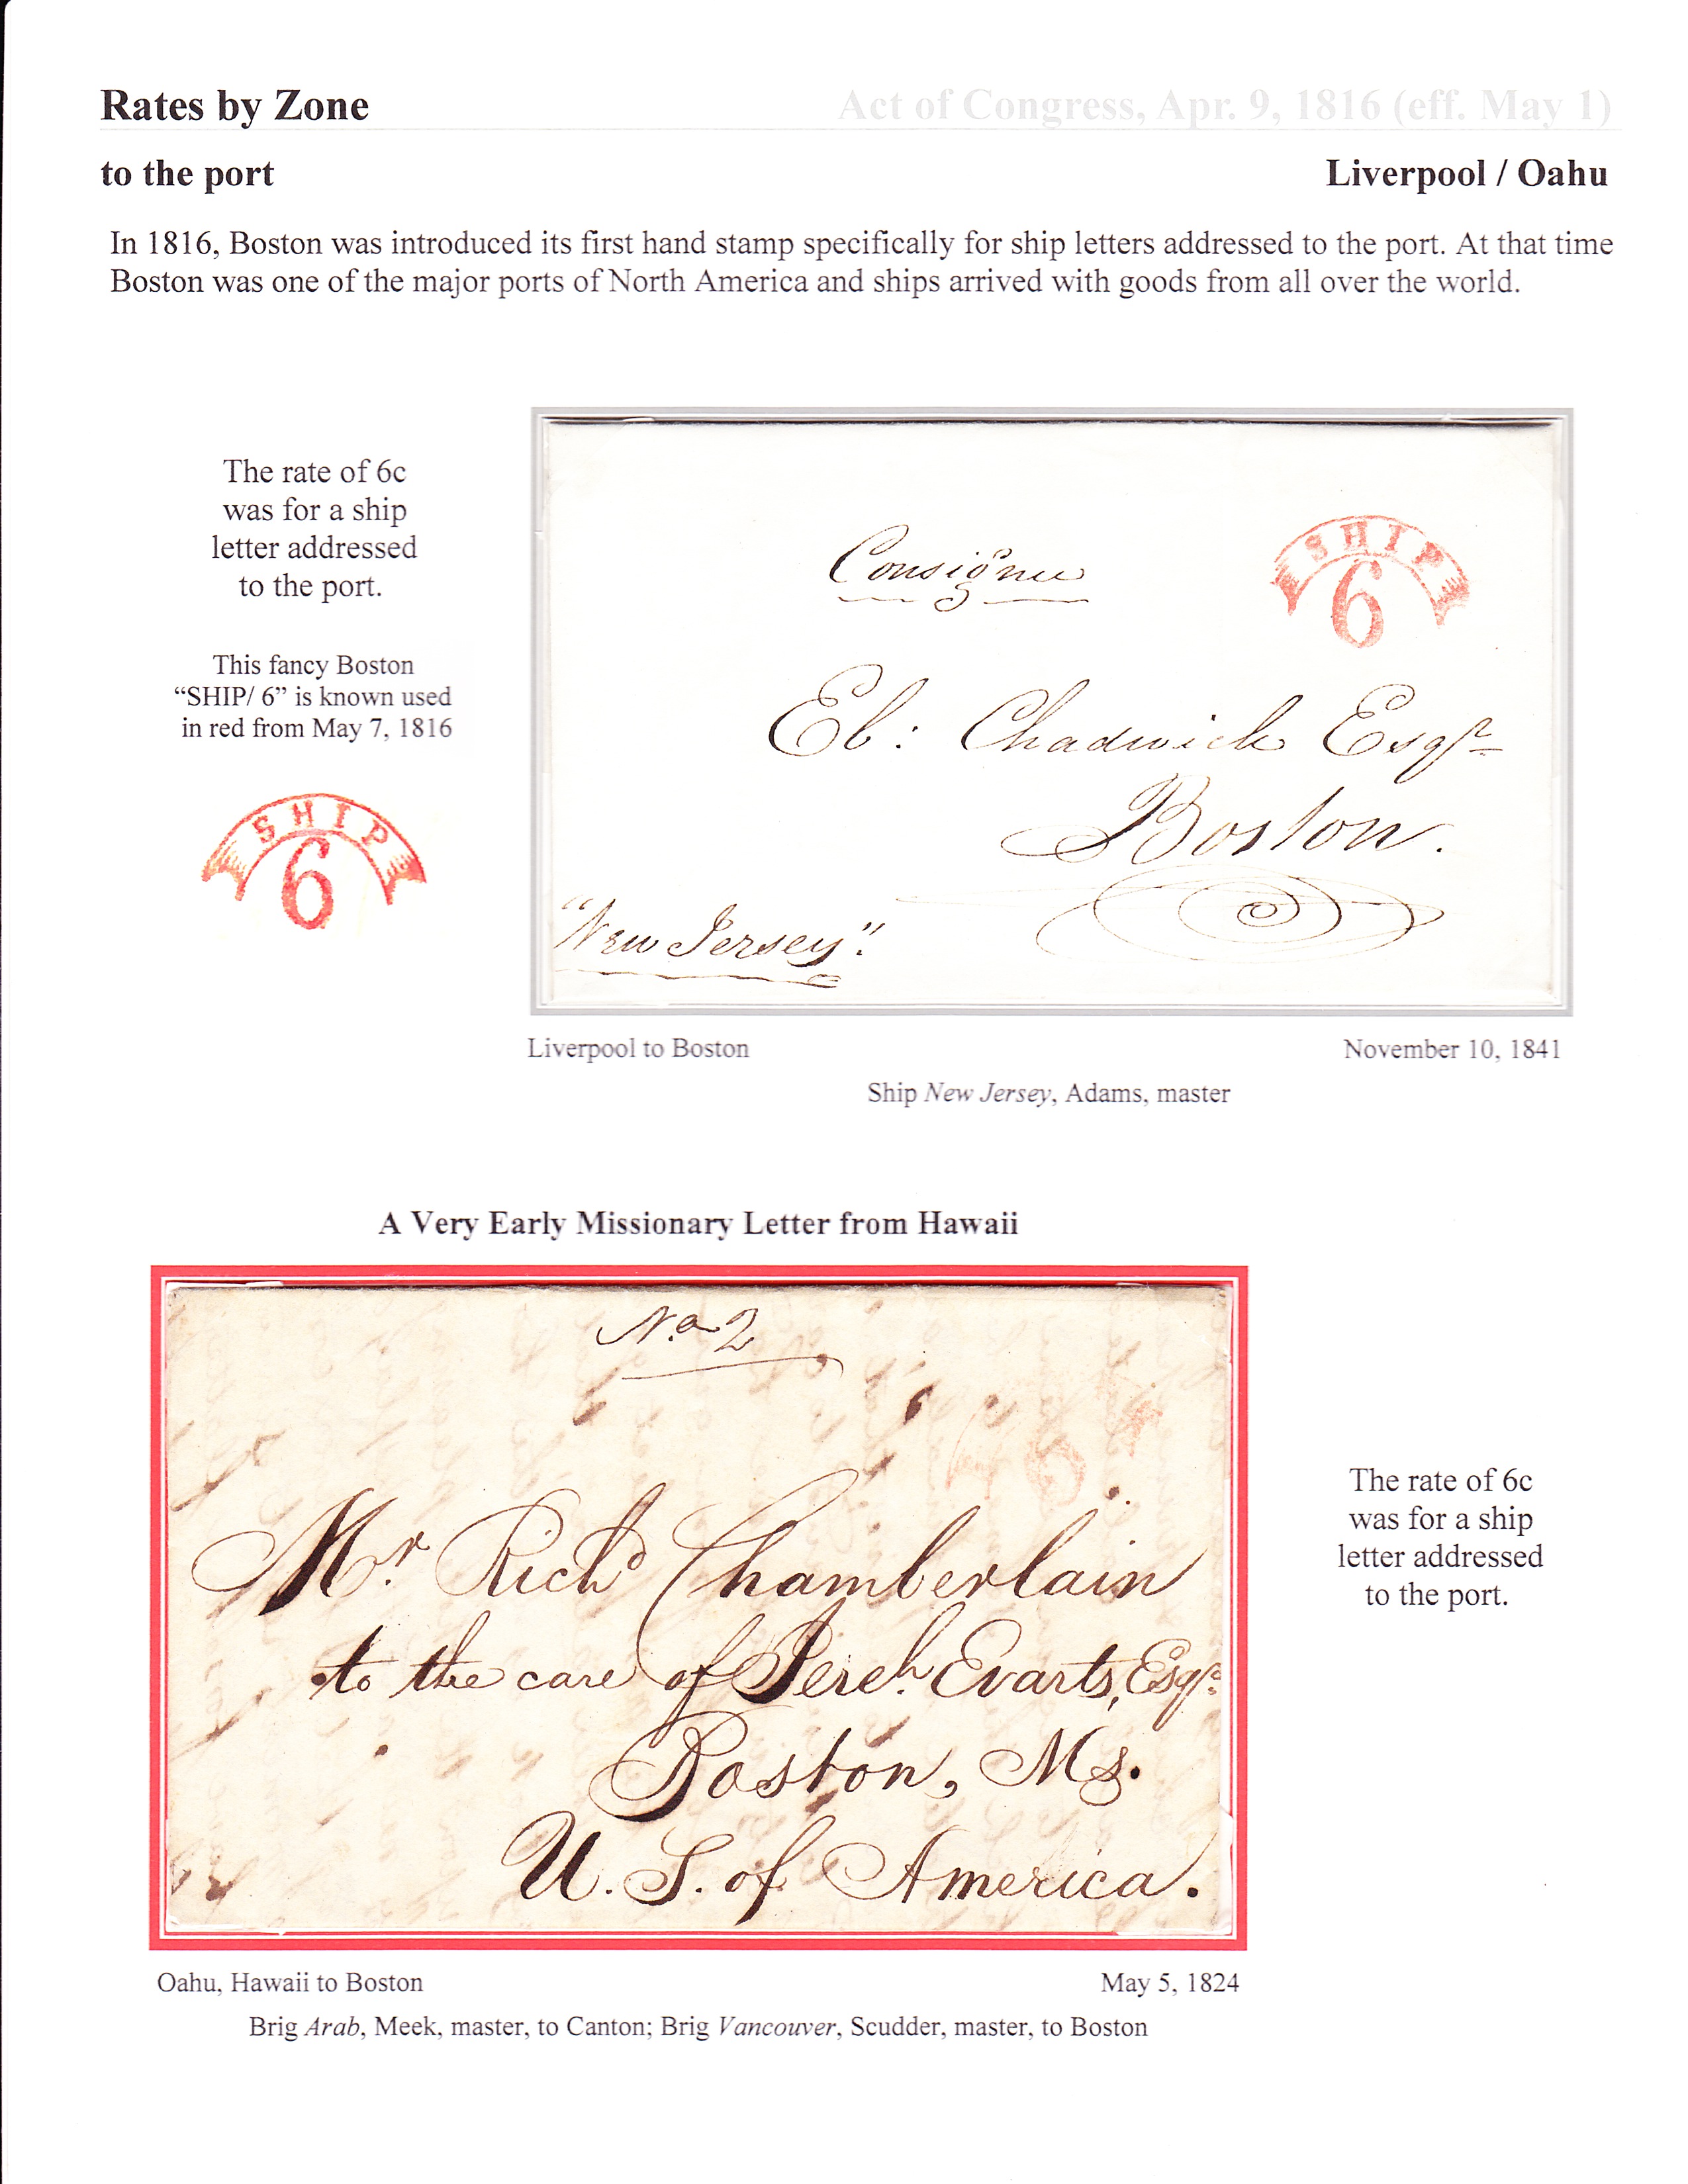 Rates by Zone
Act of Congress, Apr. 9, 1816 (eff. May 1)
to the port
Liverpool / Oahu
In 1816, Boston was introduced its first hand stamp specifically for ship letters addressed to the port. At that time
Boston was one of the major ports of North America and ships arrived with goods from all over the world.
The rate of 6c
was for a ship
letter addressed
to the port.
This fancy Boston
“SHIP/ 6” is known used
in red from May 7, 1816
SHIP
6
Consignee
SHIP
6
Eb: Chadwick Esqr
Boston.
"New Jersey".
Liverpool to Boston
November 10, 1841
Ship New Jersey, Adams, master
A Very Early Missionary Letter from Hawaii
No 2
6
Mr. Richd Chamberlain
to the care of Jereh. Evarts, Esqr.
Boston, Ms.
U. S. of America.
The rate of 6c
was for a ship
letter addressed
to the port.
Oahu, Hawaii to Boston
May 5, 1824
Brig Arab, Meek, master, to Canton; Brig Vancouver, Scudder, master, to Boston